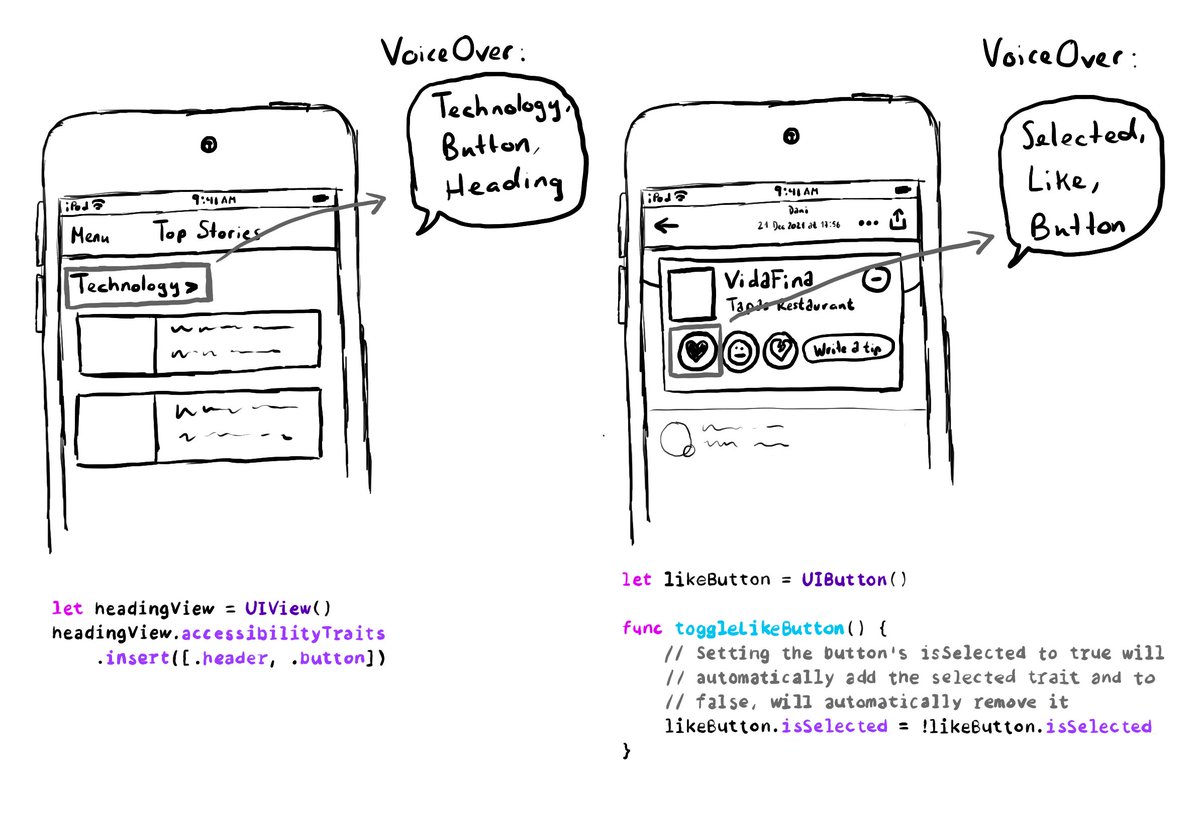 VoiceOver:
Technology,
Button,
Heading
iPod 9:41 AM
Menu Top Stories
Technology >
let headingView = UIView()
headingView.accessibilityTraits
.insert([.header, .button])
VoiceOver:
Selected,
Like,
Button
iPod 9:41 AM
Dani
21 Dec 2021 at 13:56
VidaFina
Tapas Restaurant
Write a tip
let likeButton = UIButton()
func toggleLikeButton() {
// Setting the button's isSelected to true will
// automatically add the selected trait and to
// false, will automatically remove it
likeButton.isSelected = !likeButton.isSelected
}